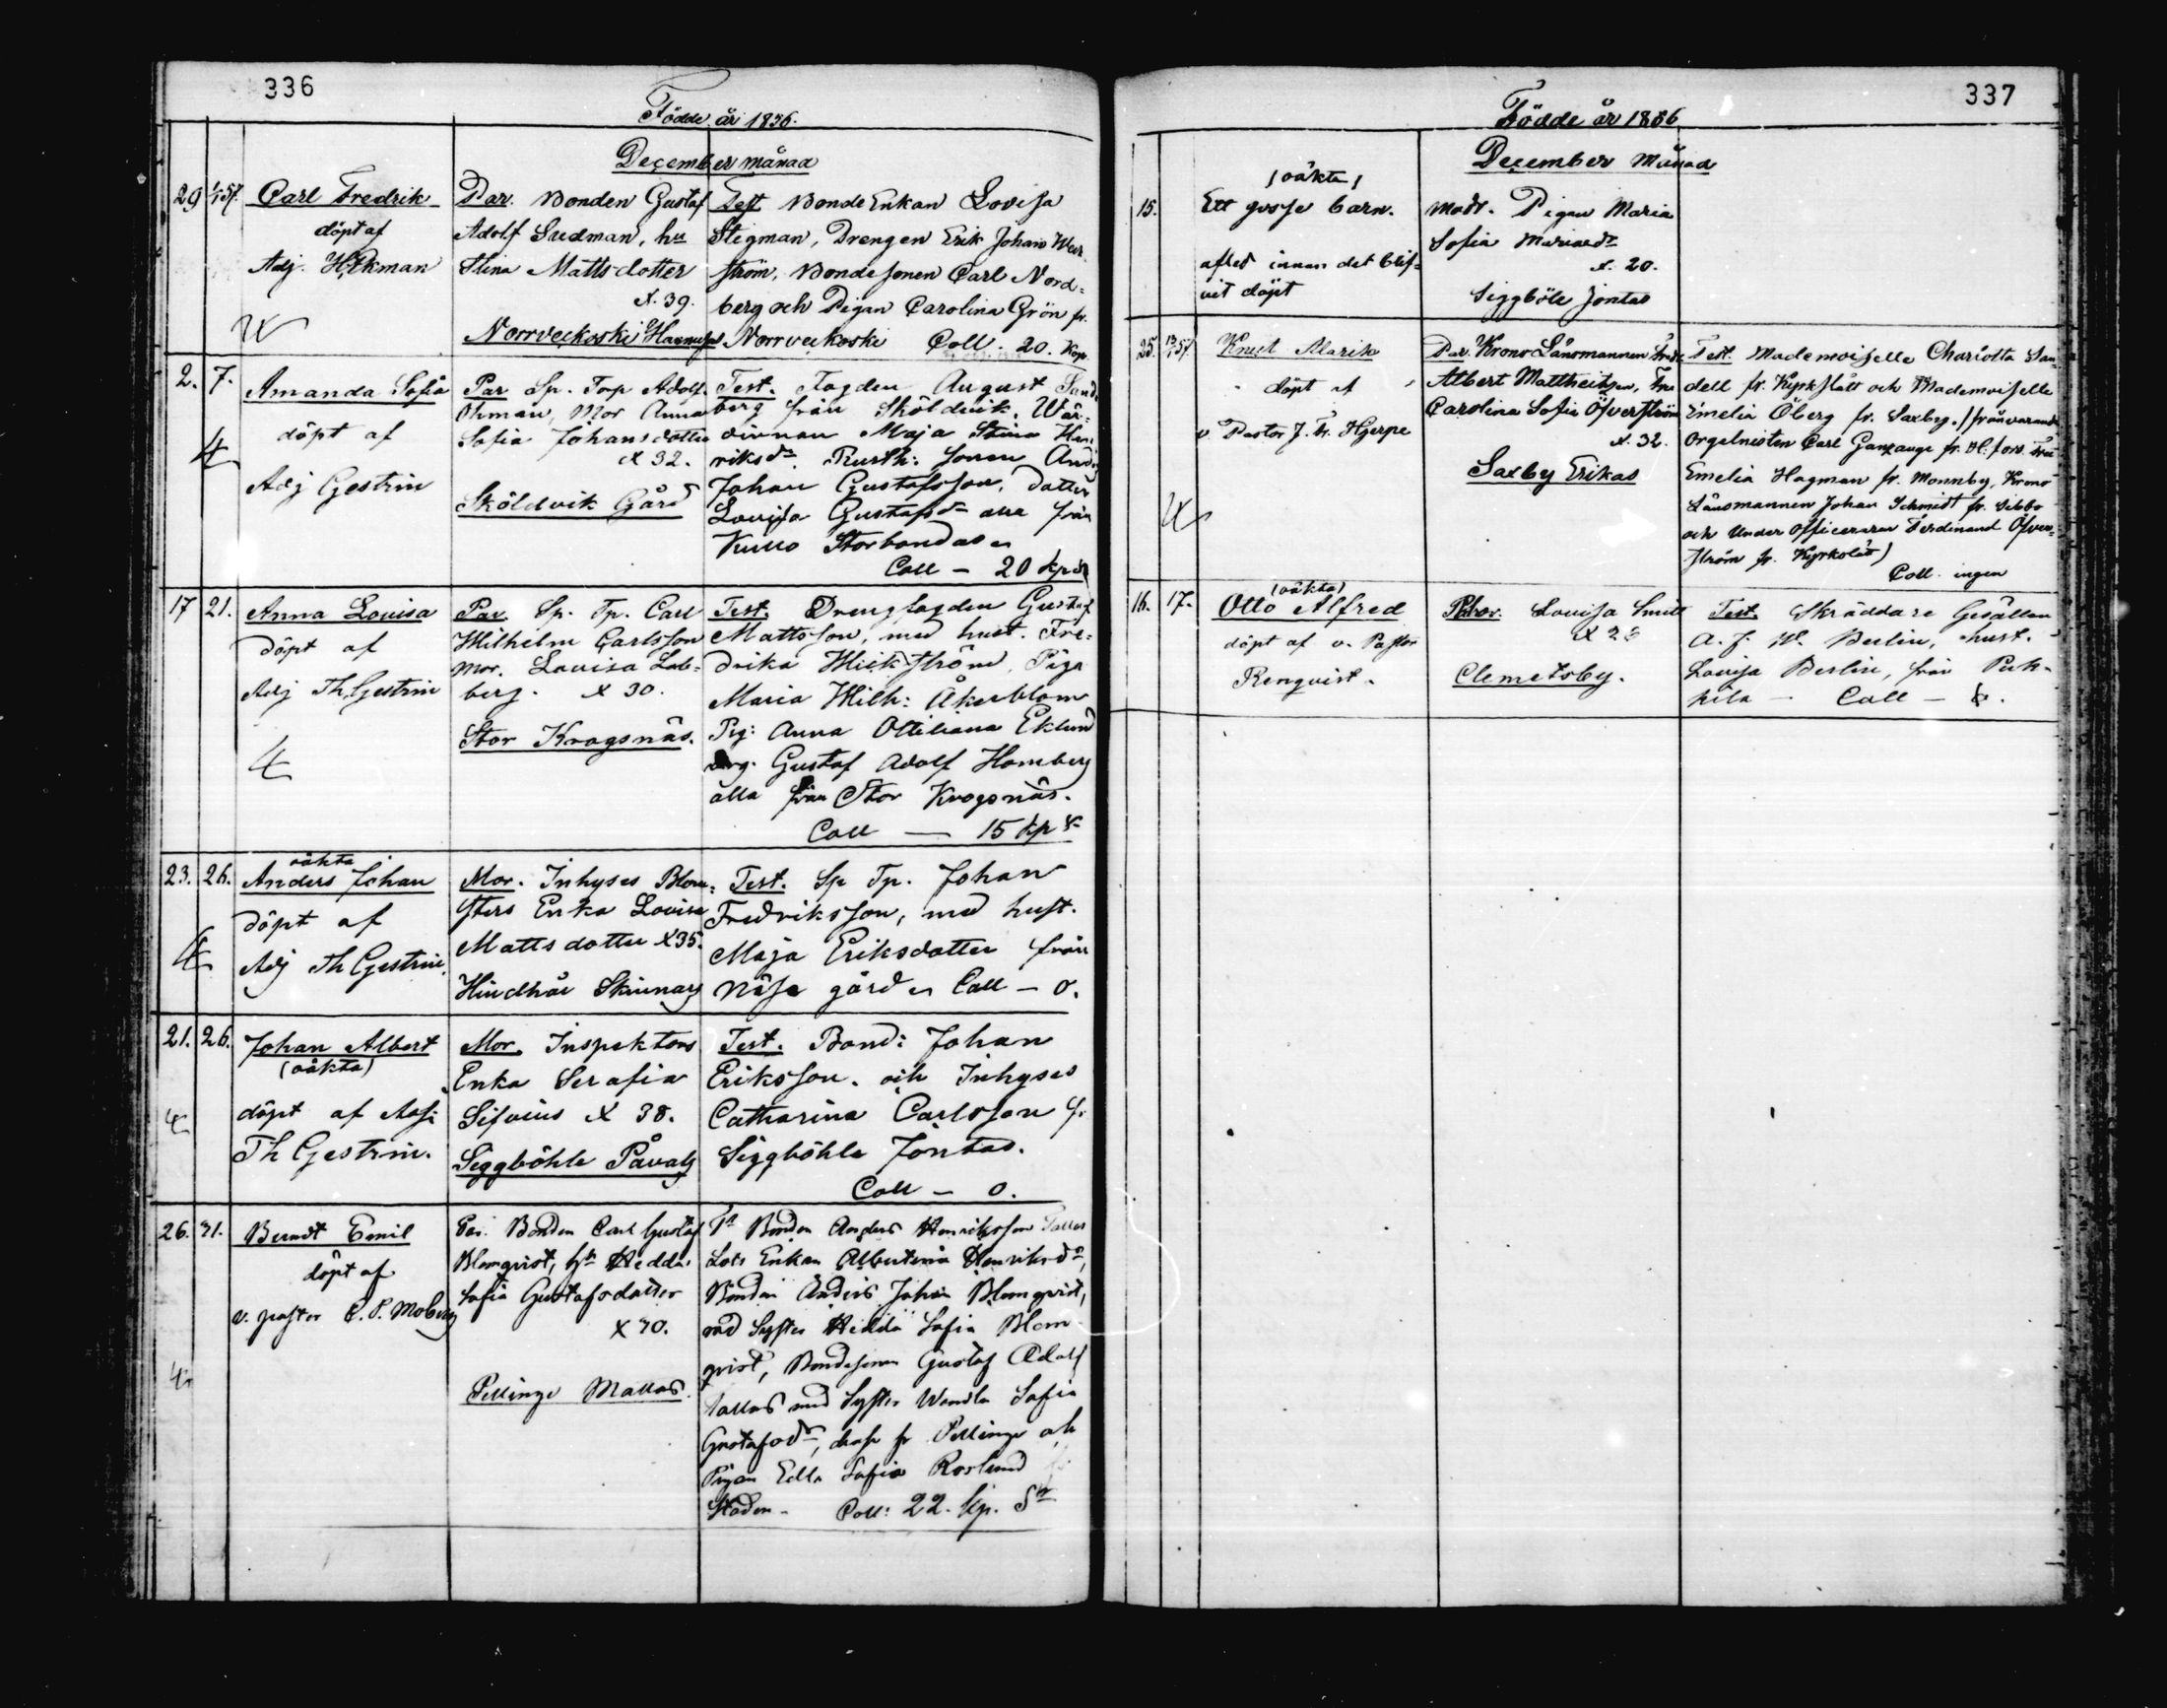 336
Födde år 1856.
December månad
29 1/1 57. Carl Fredrik
döpt af
Adj. Hickman
Par. Bonden Gustaf
Adolf Sudman, hu
Stina Mattsdotter
x. 39.
Norrveckoski Hannusas
Test BondeEnkan Lovisa
Stigman, Drengen Erik Johan
ström, Bondesonen Carl Nord-
berg och Pigan Carolina Grön fr.
Norrveckoski Coll. 20. Kop.
2. 7. Amanda Sofia
döpt af
Adj Gestrin
Par Sp. Torp Adolf
Öhman, Mor Anna
Sofia Johansdotter
x 32.
Sköldvik Gård
Test. Fogden August Sand-
berg från Sköldvik, Wär-
dinnan Maja Stina Hen-
riksdr. Rusth: sonen And:
Johan Gustafsson, dotter
Lovisa Gustafsdr alla från
Kullo Storbondas
Coll – 20 Kp Sr
17 21. Anna Lovisa
döpt af
Adj Th Gestrin
Par. Sp. Tp. Carl
Wilhelm Carlsson
Mor. Lovisa Lab-
berg. x 30.
Stor Krogsnäs.
Test. Drengfogden Gustaf
Mattsson, med hust. Fre-
drika Wickström, Piga
Maria Wilh: Åkerblom
Pig: Anna Ottiliana Eklund
drg. Gustaf Adolf Homberg
alla från Stor Krogsnäs.
Coll — 15 Kp Sr
23. 26. oäkta
Anders Johan
döpt af
Adj Th Gestrin.
Mor. Inhyses Blom-
sters Enka Lovisa
Mattsdotter x 35.
Hindhår Skinnars
Test. Sp Tp. Johan
Fredriksson, med hust.
Maja Eriksdotter från
Näse gård Coll – 0.
21. 26. Johan Albert
(oäkta)
döpt af
Th Gestrin.
Mor. Inspektors
Enka Serafia
x 38.
Siggböhle Påvals
Test. Bond: Johan
Eriksson. och Inhyses
Catharina Carlsson fr
Siggböhle Jontas.
Coll – 0.
26. 31. Berndt Emil
döpt af
v. pastor C. P. Moberg
Par. Bonden Carl Gustaf
Blomqvist, hu Hedda
Sofia Gustafsdotter
x 30.
Pellinge Mallas.
Bonden Anders Henriksson Tallas
Enkan Albertina Henriksdr,
Bonden Anders Johan Blomqvist,
med Syster Hedda Sofia Blom-
qvist, Bondesonen Gustaf Adolf
Tallas med Syster Wendla Sofia
Gustafsdr, dessa fr Pellinge och
Pigan Edla Sofia Roslund
Staden – Coll: 22. Kp. Sr
337
Födde år 1856
December Månad
(oäkta)
15. Ett gosse barn.
afled innan det blif-
vit döpt
Modr. Pigan Maria
Sofia Mariaedr
x. 20.
Siggböle Jontas
25. 13/1 57. Knut Alarik
döpt af
v Pastor J. Fr. Hjerpe
Par. KronoLänsmannen
Albert Mattheiszen, Fru
Carolina Sofia Öfverström
x. 32.
Saxby Erikas
Test. Mademoiselle Charlotta San-
dell fr. Kyrkslätt och Mademoiselle
Emelia Öberg fr. Saxby. (frånvarande
Orgelnisten Carl Ganzauge fr. H:fors
Emelia Hagman fr. Monnby, Krono
Länsmannen Johan Schmidt fr. Sibbo
och Under Officeraren Ferdinand Öfver-
ström fr. Kyrkslätt)
Coll. ingen
16. 17. (oäkta)
Otto Alfred
döpt af v. Pastor
Renqvist.
Mor. Lovisa Smitt
Clemetsby.
Test. Skräddare Gesällen
A. J. W. Berlin, hust.
Lovisa Berlin, från Puk-
kila – Coll –